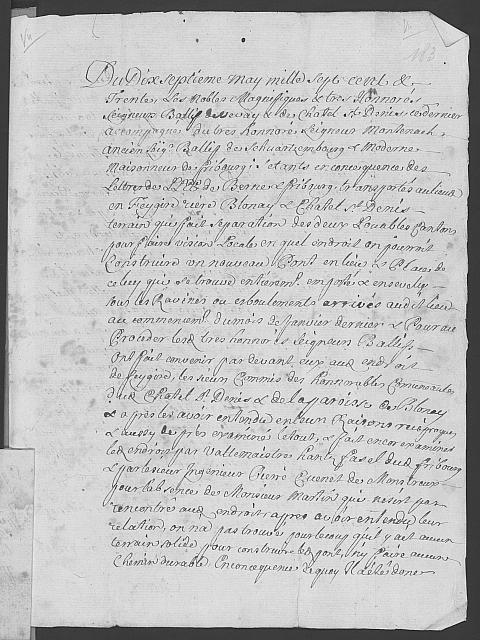 Vu
163
Du Dix septieme may mille sept cent &
Trente, Les Nobles Magnifiques & tres Honnorés
Seigneurs Ballifs de Vevay & de Chatel St. Denis, ce dernier
accompagné du tres honnoré Seigneur Montenach,
ancien Seigr. Ballif de Schuartzembourg & Moderne
Maisonneur de fribourg; s'etants en concequence des
Lettres de LL. de Berne & fribourg, transportes au lieu dit
en feygire riere Blonay & Chatel St. Denis
terrain qui fait separation des deux Louables Cantons
pour faire vision Locale en quel endroit on pourroit
Construire un nouveau Pont en lieu & Place de
celuy qui se trouve entieremt. emporté & ensevely
sous les Ravines ou esboulements arrivés audt. lieu
au commencemt. du mois de Janvier dernier & Pour au
Proceder les tres honnorés Seigneurs Ballifs
Ont fait convenir par devant eux aud. endroit
de feygire, les sieurs Commis des honnorables Communautes
dud. Chatel St. Denis & de la paroisse de Blonay
& apres les avoir entendu en leurs Raisons reciproques
& aussy de près examiné le tout, & fait encor examiner
led. endroit par Vallemaistre hants fasel dud. fribourg
& par le sieur Ingenieur Pierre Cuenet de Monstreux
pour l'absence de Monsieur Martin qui ne s'est pas
rencontré aud. endroit apres avoir entendu leur
relation, on n'a pas trouvé pour le coup qu'il y ait aucun
terrain solide pour construire led. pont, ny faire aucun
Chemin durable. En concequence de quoy Il a été donc